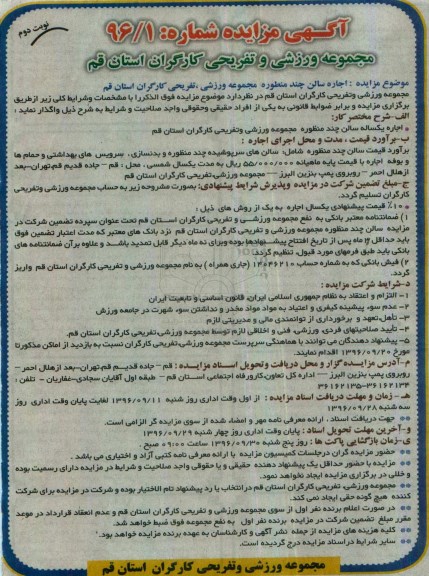 نوبت دوم
آگهی مزایده شماره: ۹۶/۱
مجموعه ورزشی و تفریحی کارگران استان قم
موضوع مزایده : اجاره سالن چند منظوره مجموعه ورزشی ،تفریحی کارگران استان قم
مجموعه ورزشی وتفریحی کارگران استان قم در نظردارد موضوع مزایده فوق الذکررا با مشخصات وشرایط کلی زیر ازطریق
برگزاری مزایده و برابر ضوابط قانونی به یکی از افراد حقیقی وحقوقی واجد صلاحیت و شرایط به شرح ذیل واگذار نماید :
الف-شرح مختصر کار:
اجاره یکساله سالن چند منظوره مجموعه ورزشی وتفریحی کارگران استان قم
ب-برآورد قیمت ، مدت و محل اجرای اجاره :
برآورد قیمت سالن چند منظوره شامل: سالن های سرپوشیده چند منظوره و بدنسازی ، سرویس های بهداشتی و حمام ها
و بوفه اجاره با قیمت پایه ماهیانه ۵۵/۰۰۰/۰۰۰ ریال به مدت یکسال شمسی . محل : قم - جاده قدیم قم،تهران-بعد
ازهلال احمر – روبروی پمپ بنزین البرز – مجموعه ورزشی،تفریحی کارگران استان قم
ج-مبلغ تضمین شرکت در مزایده وپذیرش شرایط پیشنهادی: بصورت مشروحه زیر به حساب مجموعه ورزشی وتفریحی
کارگران تسلیم گردد.
۱۰٪ قیمت پیشنهادی یکسال اجاره به یکی از روش های ذیل :
۱) ضمانتنامه معتبر بانکی به نفع مجموعه ورزشی و تفریحی کارگران استان قم تحت عنوان سپرده تضمین شرکت در
مزایده سالن چند منظوره مجموعه ورزشی و تفریحی کارگران استان قم نزد بانک های معتبر که مدت اعتبار تضمین فوق
باید حداقل ماه پس از تاریخ افتتاح پیشنهادها بوده وبرای نه ماه دیگر قابل تمدید باشد و علاوه برآن ضمانتنامه های
بانکی باید طبق فرمهای مورد قبول، تنظیم گردد.
۲) فیش بانکی که به شماره حساب (جاری همراه ) به نام مجموعه ورزشی و تفریحی کارگران استان قم واریز
گردد.
د-شرایط شرکت مزایده :
۱- التزام و اعتقاد به نظام جمهوری اسلامی ایران، قانون اساسی و تابعیت ایران
۲- عدم سوء پیشینه کیفری و اعتیاد به مواد مخدر و نداشتن سوء شهرت در جامعه ورزش
۳- تأهل،تعهد و برخورداری از توانمندی مالی و مدیریتی لازم
۴- تأیید صلاحیتهای فردی، ورزشی، فنی و اخلاقی لازم توسط مجموعه ورزشی،تفریحی کارگران استان قم.
۵- پیشنهاد دهندگان می توانند با هماهنگی سرپرست مجموعه ورزشی،تفریحی کارگران نسبت به بازدید از اماکن مذکورتا
مورخ ۱۳۹۶/۰۹/۲۰ اقدام نمایند.
۶-آدرس مزایده گزار و محل دریافت وتحویل اسناد مزایده : قم - جاده قدیم قم تهران-بعد ازهلال احمر -
روبروی پمپ بنزین البرز – اداره کل تعاون،کارورفاه اجتماعی استان قم – طبقه اول آقایان سجادی-غفاریان - تلفن :
۳۶۱۶۲۱۳۴-۳۶۱۶۲۱۳۵
هـ- زمان و مهلت دریافت اسناد مزایده : از اول وقت اداری روز شنبه ۱۳۹۶/۰۹/۱۱ لغایت پایان وقت اداری روز
سه شنبه ۱۳۹۶/۰۹/۲۸
جهت دریافت اسناد ، ارائه معرفی نامه مهر و امضاء شده از سوی مزایده گر الزامی است.
و-آخرین مهلت تحویل اسناد : پایان وقت اداری روز چهار شنبه ۱۳۹۶/۰۹/۲۹
ی-زمان بازگشایی پاکت ها : روز پنج شنبه ۱۳۹۶/۰۹/۳۰ ساعت ۰۹:۰۰ صبح
حضور مزایده گران درجلسات کمیسیون مزایده با ارائه معرفی نامه کتبی آزاد و اختیاری می باشد .
مزایده با حضور حداقل یک پیشنهاد دهنده حقیقی و یا حقوقی واجد صلاحیت و شرایط در مزایده دارای رسمیت بوده
و خللی در برگزاری مزایده ایجاد نخواهد نمود.
مجموعه ورزشی، تفریحی کارگران استان قم درانتخاب یا رد پیشنهاد تام الاختیار بوده و شرکت در مزایده برای شرکت
کننده هیچ گونه حقی ایجاد نمی کند.
در صورت اعلام برنده نفر اول از سوی مجموعه ورزشی و تفریحی کارگران استان قم و عدم انعقاد قرارداد در موعد
مقرر مبلغ تضمین شرکت در مزایده برنده نفر اول به نفع مجموعه فوق ضبط خواهد شد.
کلیه هزینه های مزایده از جمله نشر آگهی و کارشناسان به عهده برنده مزایده خواهد بود.
سایر شرایط دراسناد مزایده درج گردیده است.
مجموعه ورزشی وتفریحی کارگران استان قم